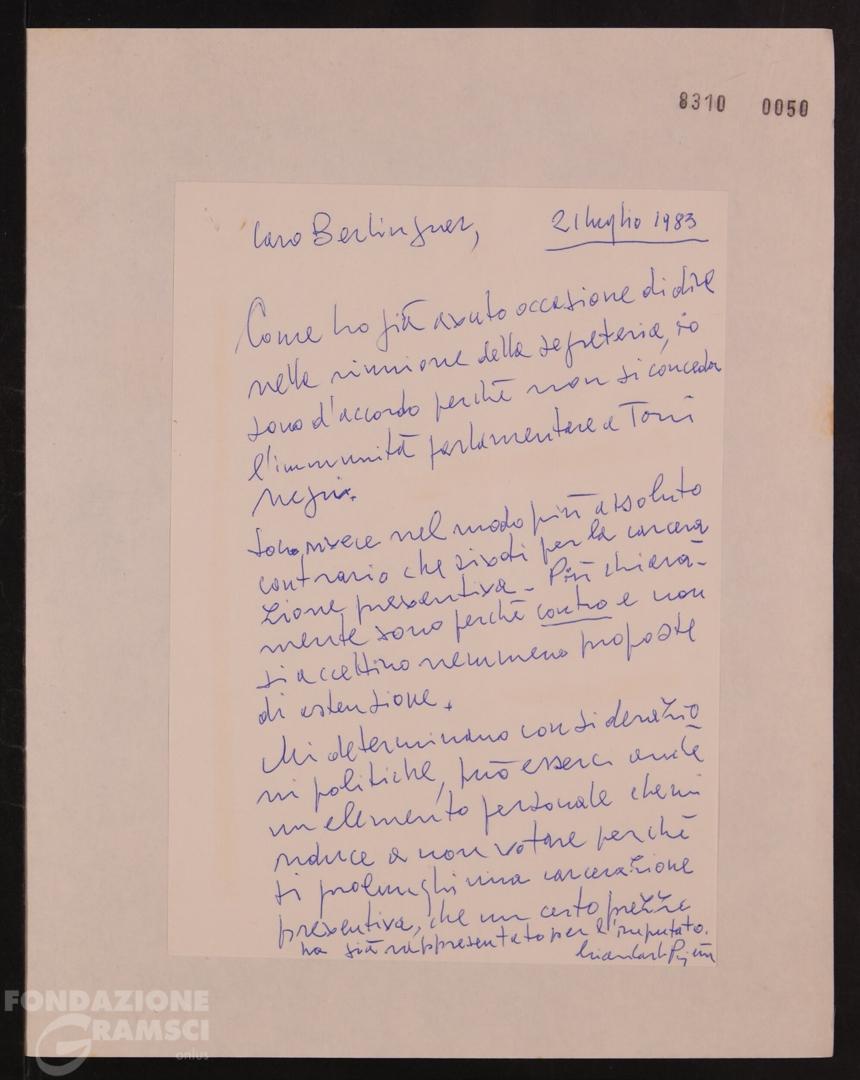 8310 0050
Caro Berlinguer, 21 luglio 1983
Come ho già avuto occasione di dire
nella riunione della segreteria, io
sono d'accordo perché non si conceda
l'immunità parlamentare a Toni
Negri.
Sono invece nel modo più assoluto
contrario che si voti per la carcera
zione preventiva - Più chiara-
mente sono perché contro e non
si accettino nemmeno proposte
di astensione.
Mi determinano considerazio
ni politiche, può esserci anche
un elemento personale che mi
induce a non votare perché
si prolunghi una carcerazione
preventiva, che un certo prezzo
ha già rappresentato per l'imputato.
Giancarlo Pajetta
FONDAZIONE
GRAMSCI
onlus